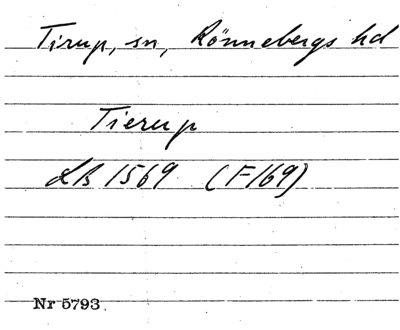 Tirup, sn, Rönnebergs hd
Tierup
LB 1569 (F169)
Nr 5793